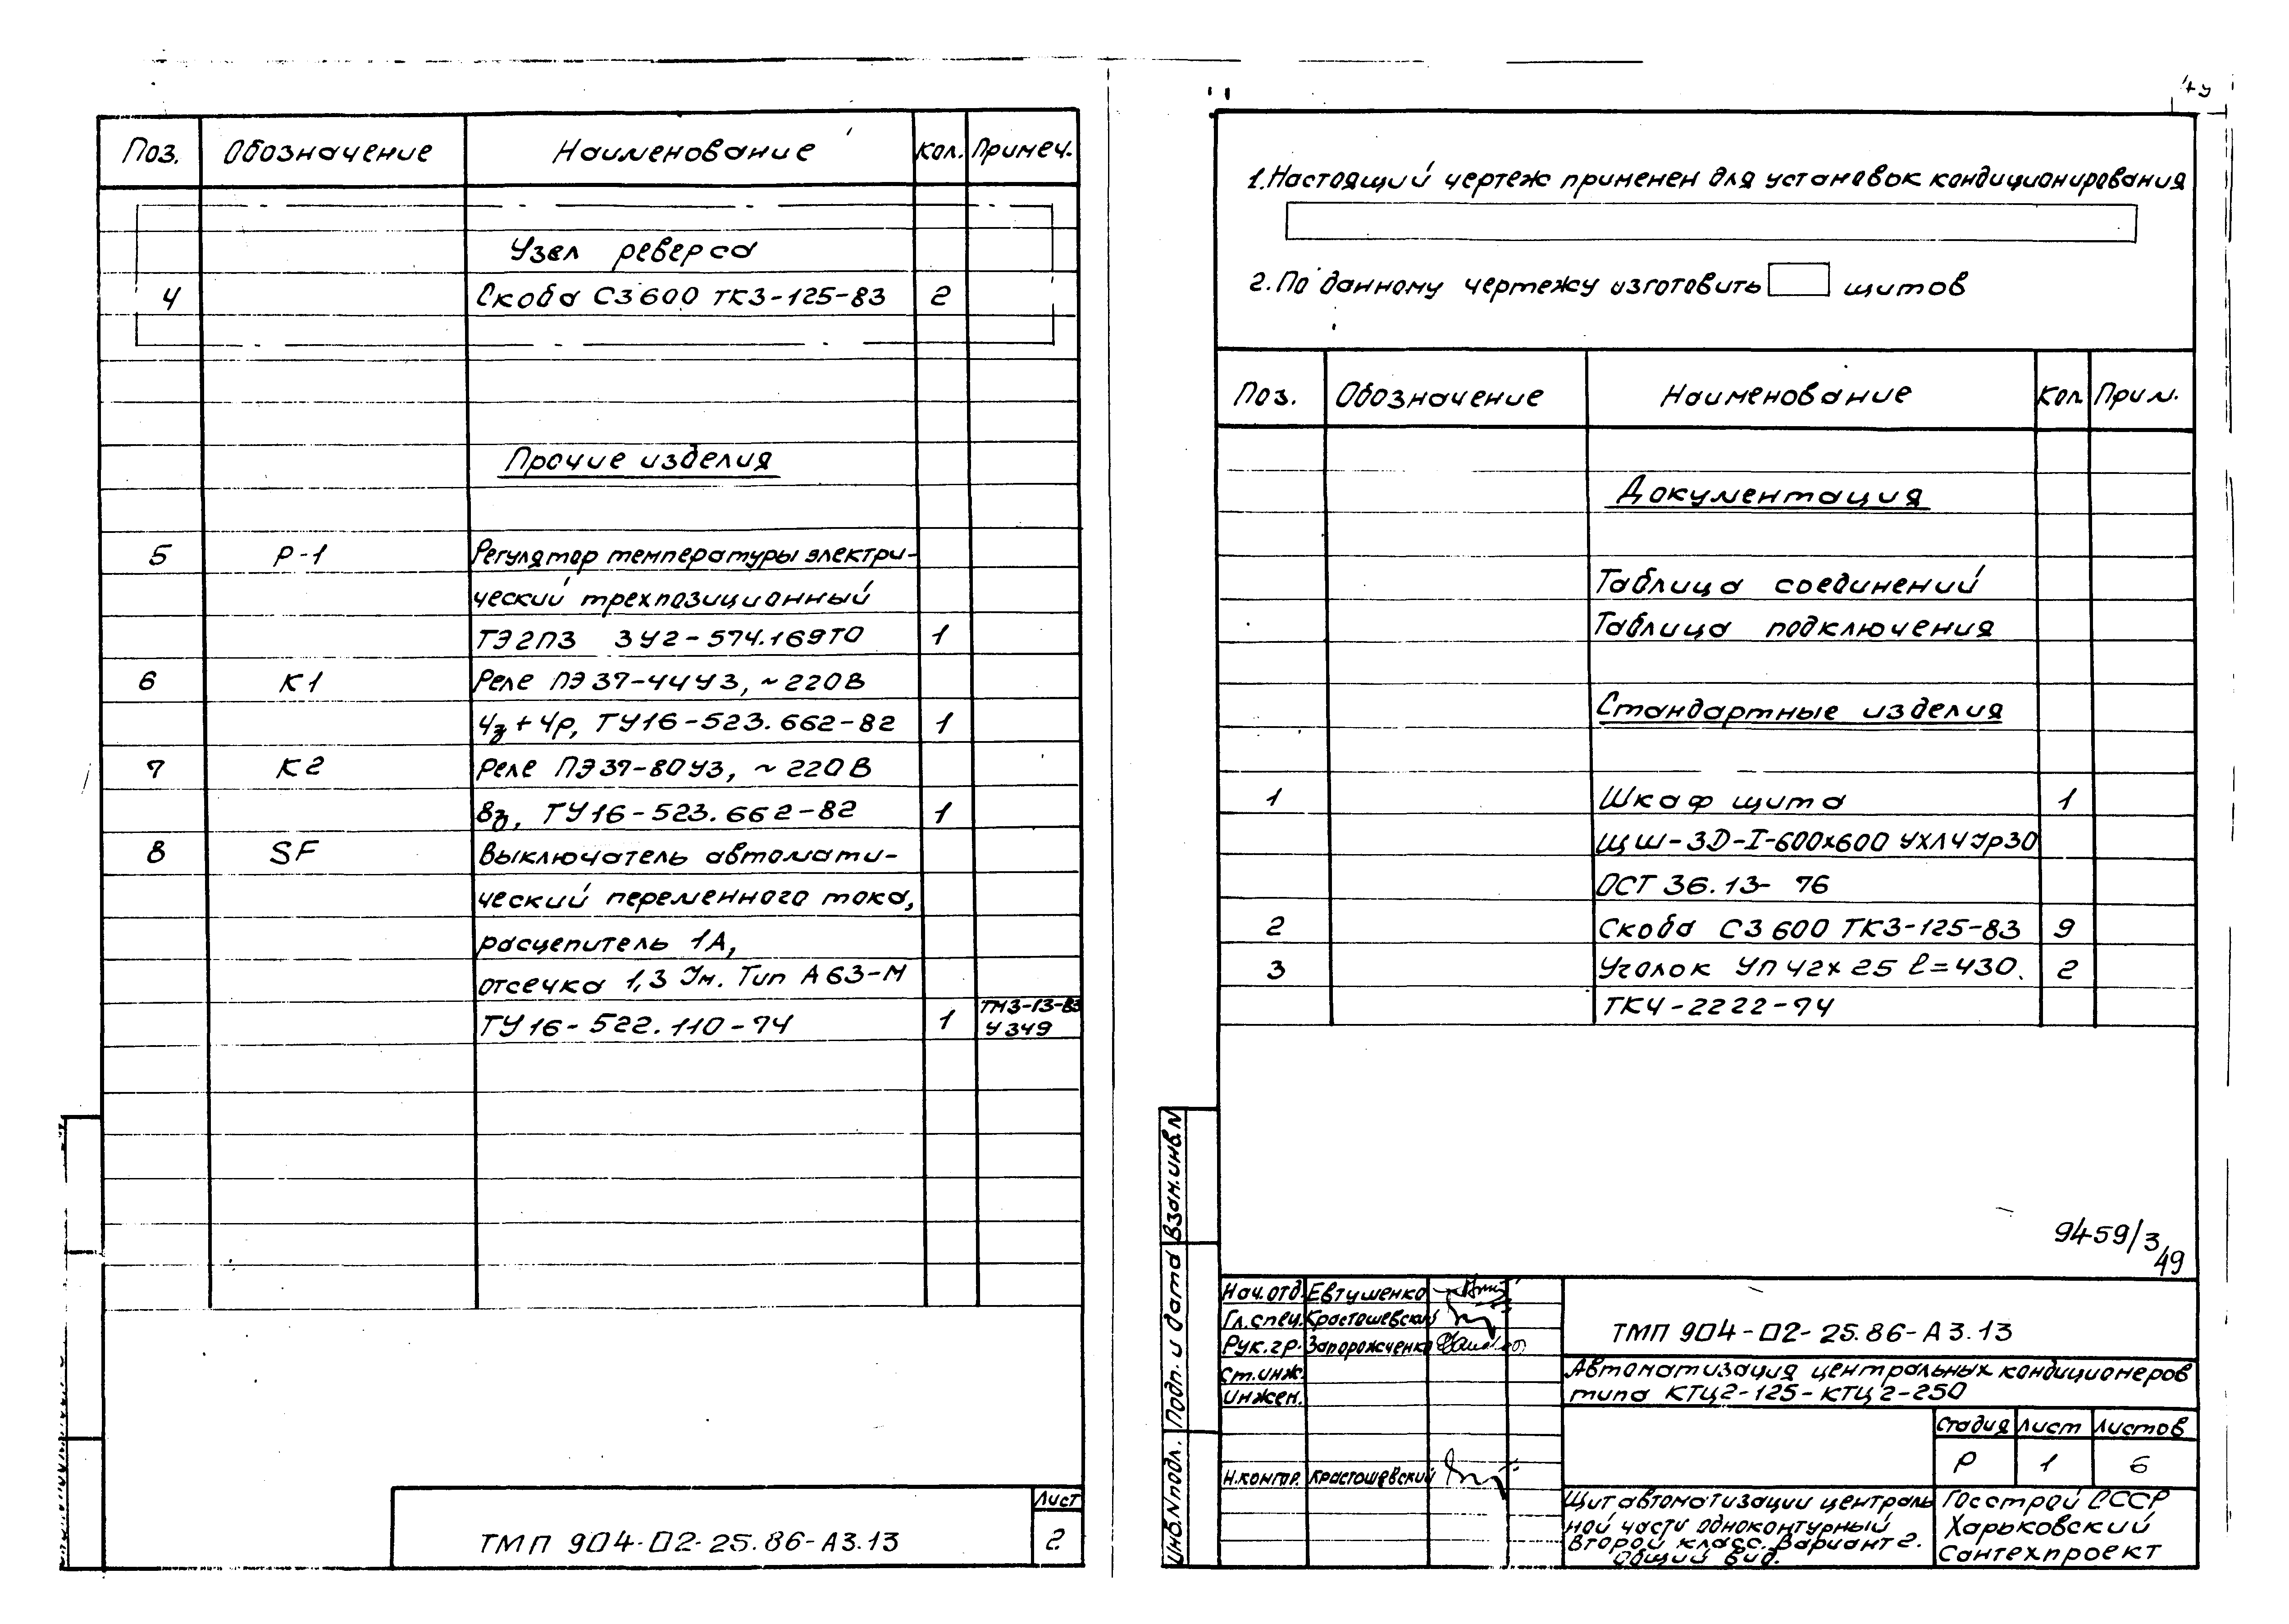 Поз. Обозначение Наименование Кол. Примеч.
Узел реверса
4 Скоба С3600 ТК3-125-83 2
Прочие изделия
5 Р-1 Регулятор температуры электри-
ческий трехпозиционный
ТЭ2П3 3У2-574.169ТО 1
6 К1 Реле ПЭ37-44У3, ~220В
4з + 4р, ТУ16-523.662-82 1
7 К2 Реле ПЭ37-80У3, ~220В
8з, ТУ16-523.662-82 1
8 SF Выключатель автомати-
ческий переменного тока,
расцепитель 1А,
отсечка 1,3 Iн. Тип А63-М
ТУ16-522.110-74 1 ТМ3-13-83
У349
ТМП 904-02-25.86-А3.13
Лист
2
49
1. Настоящий чертеж применен для установок кондиционирования
2. По данному чертежу изготовить щитов
Поз. Обозначение Наименование Кол. Прим.
Документация
Таблица соединений
Таблица подключения
Стандартные изделия
1 Шкаф щита 1
ЩШ-3Д-I-600х600 УХЛ4 Ур30
ОСТ 36.13-76
2 Скоба С3600 ТК3-125-83 9
3 Уголок УП 42х25 l=430. 2
ТК4-2222-74
9459/3
49
Взам.инв.N
Подп. и дата
Инв.N подл.
Нач.отд. Евтушенко
Гл.спец. Красташевский
Рук.гр. Запорожченко
Ст.инж.
Инжен.
Н.контр. Красташевский
ТМП 904-02-25.86-А3.13
Автоматизация центральных кондиционеров
типа КТЦ2-125-КТЦ2-250
Стадия Лист Листов
Р 1 6
Щит автоматизации централь
ной части одноконтурный
Второй класс. Вариант 2.
Общий вид.
Госстрой СССР
Харьковский
Сантехпроект